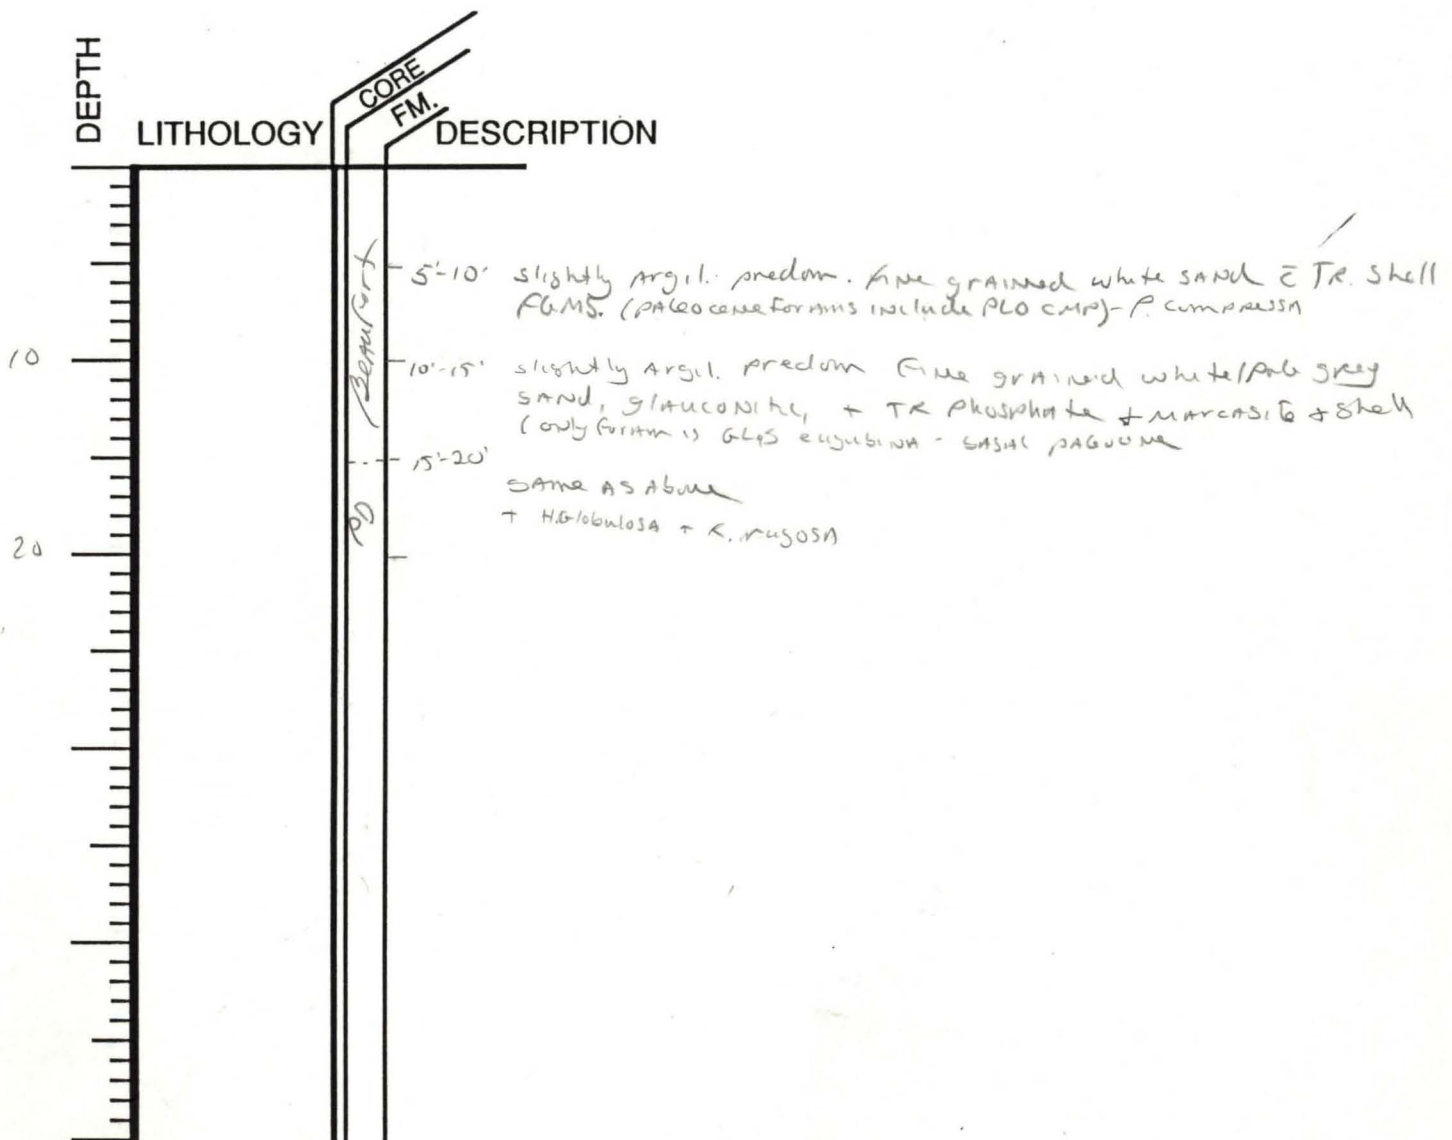 DEPTH
LITHOLOGY
CORE
FM.
DESCRIPTION
Beaufort
5'-10' slightly Argil. predom. fine grained white SAND c̄ TR. Shell
FGMS. (PALEOCENE forams include PLO CMP)- P. compressa
10
10'-15' slightly Argil. predom fine grained white/pale grey
SAND, glauconite, + TR Phosphate + MARCASITE + Shell
(only foram is GLBS eugubina - BASAL
15'-20'
SAME AS Above
+ H.Globulosa + rugosa
PD
20